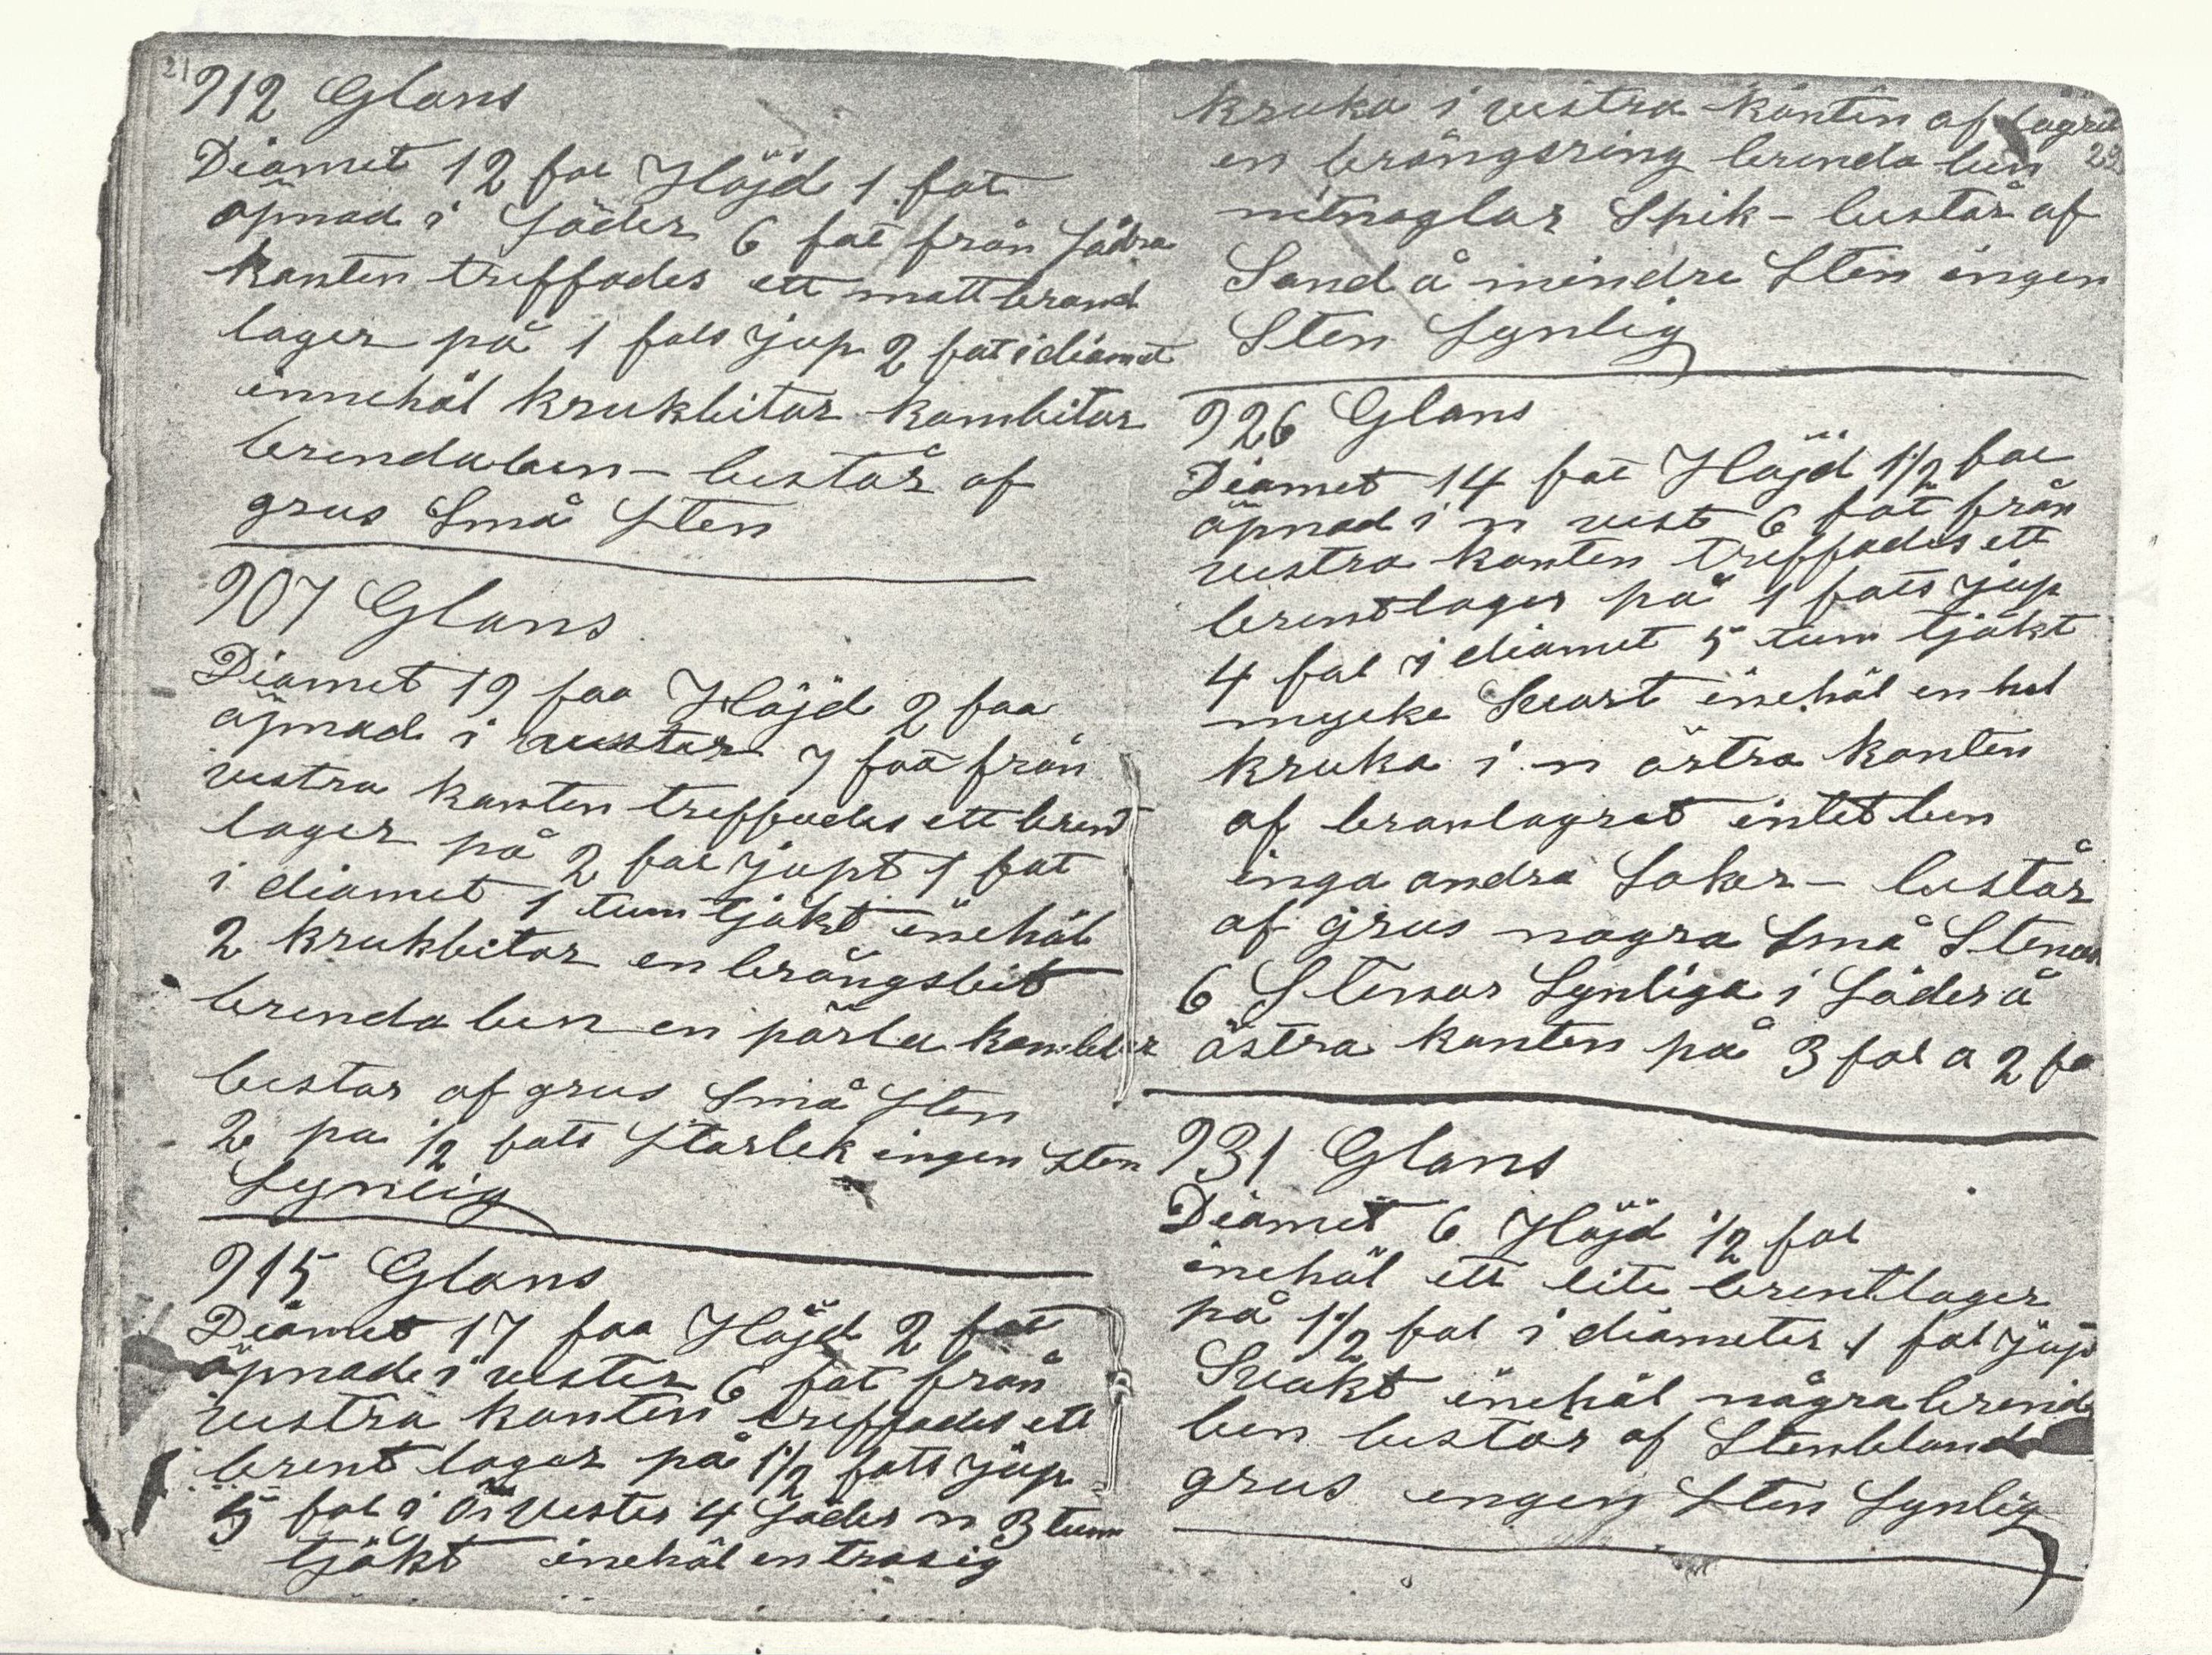 21
912 Glans
Diamet 12 fot Höjd 1 fot
öpnad i Söder 6 fot från Södra
kanten treffades ett matt brand
lager på 1 fots jup 2 fot i diamet
innehöl krukbitar kambitar
brenda ben - består af
grus Små Sten
907 Glans
Diamet 19 fot Höjd 2 fot
öpnad i vester 7 fot från
vestra kanten treffades ett brent
lager på 2 fot jupt 1 fot
i diamet 1 tum tjökt inehöl
2 krukbitar en brängsbit
brenda ben en pärla kambitar
bestar af grus Små Sten
2 pa 1/2 fots Starlek ingen Sten
Synlig
915 Glans
Diamet 17 fot Höjd 2 fot
öpnade i vester 6 fot från
vestra kanten treffades ett
brent lager på 1 1/2 fots jup
5 fot i ö vester 4 Söder n 3 tum
tjökt inehöl en trasig
kruka i vestra kanten af lagret
22
en brängsring brenda ben
nitnaglar Spik - består af
Sand å mindre Sten ingen
Sten Synlig
926 Glans
Diamet 14 fot Höjd 1 1/2 fot
öpnad i n vest 6 fot från
vestra kanten treffades ett
brentlager på 1 fots jup
4 fot i diamet 5 tum tjökt
mycke Svart inehöl en hel
kruka i n östra kanten
af branlagret intet ben
inga andra Saker - består
af grus nagra Små Stenar
6 Stenar Synliga i Söder å
östra kanten på 3 fot a 2 fo
931 Glans
Diamet 6 Höjd 1/2 fot
inehöl ett lite brentlager
på 1 1/2 fot i diameter 1 fot jup
Svakt inehöl några brenda
ben består af Stenbland
grus ingen Sten Synlig